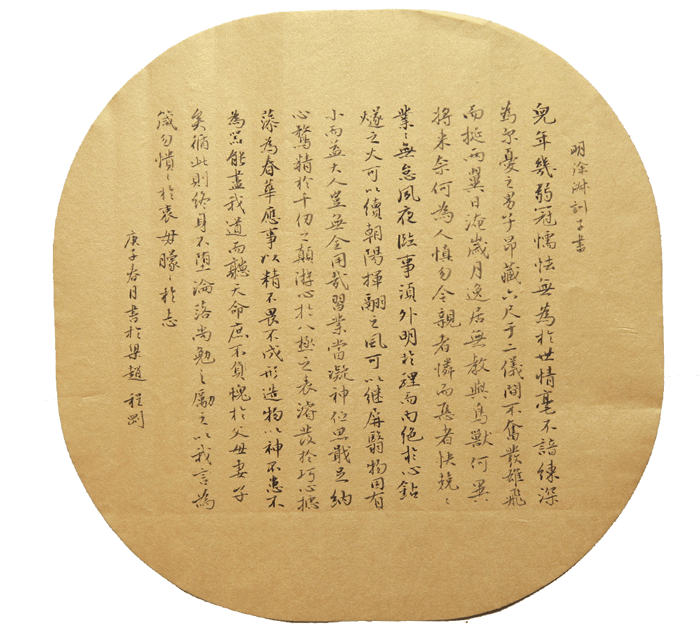 明涂渊训子书
兒年幾弱冠懦怯無為於世情毫不諳練深
為尔憂之男子昂藏六尺于二儀間不奮發雄飛
而挺兩翼日淹歲月逸居無教與鳥獸何異
將来奈何為人慎勿令親者憐而惡者快兢〻
業〻無怠夙夜臨事須外明於理而內絕於心鉆
燧之火可以續朝陽揮翮之風可以继屏翳物固有
小而益大人豈無全用哉習業當凝神伫思戢足納
心騖精於千仞之顛游心於八極之表濬發於巧心攄
藻為春華應事以精不畏不成形造物以神不患不
為器能盡我道而聽天命庶不負愧於父母妻子
矣循此則終身不墮淪落尚勉之勵之以我言為
箴勿憒〻於衷毋矇〻於志
庚子春月書於梁趙程罡